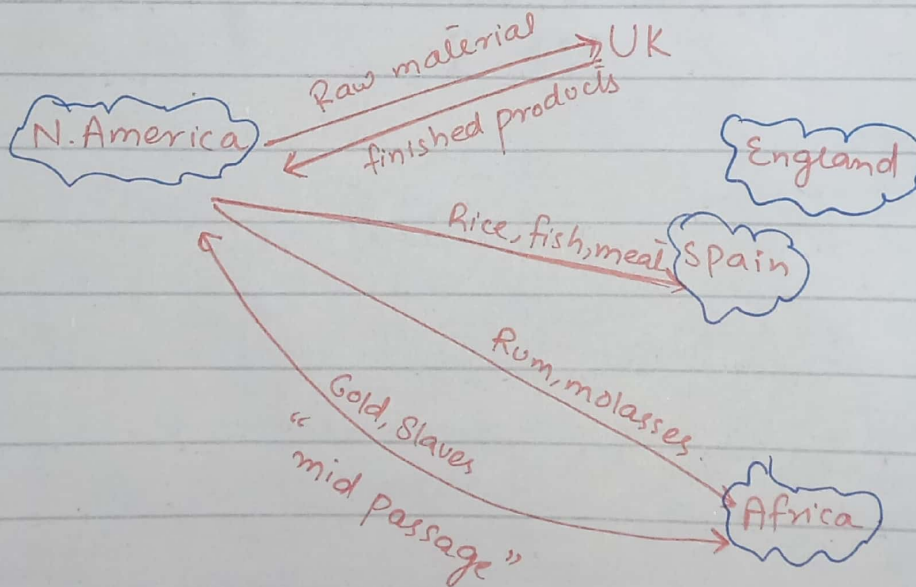 UK
Raw material
finished products
N. America
England
Rice, fish, meat,
Spain
Rum, molasses.
Gold, Slaves
"mid passage"
Africa